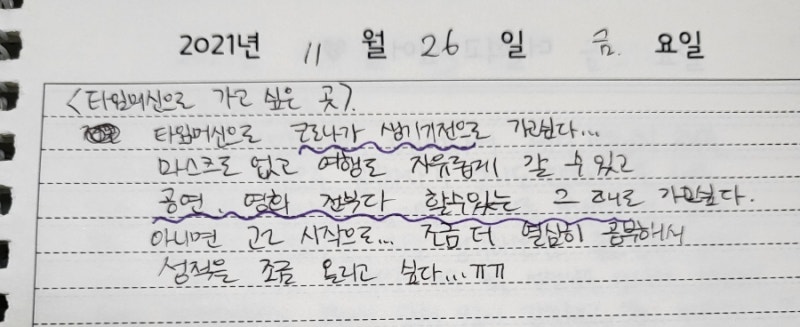 2021년 11 월 26 일 금. 요일
<타임머신으로 가고 싶은 곳>.
타임머신으로 코로나가 생기기전으로 가고싶다...
마스크도 없고 여행도 자유롭게 갈 수 있고
공연, 영화 전부다 할수있는 그 때로 가고싶다.
아니면 고2 시작으로... 조금 더 열심히 공부해서
성적을 조금 올리고 싶다...ㅠㅠ